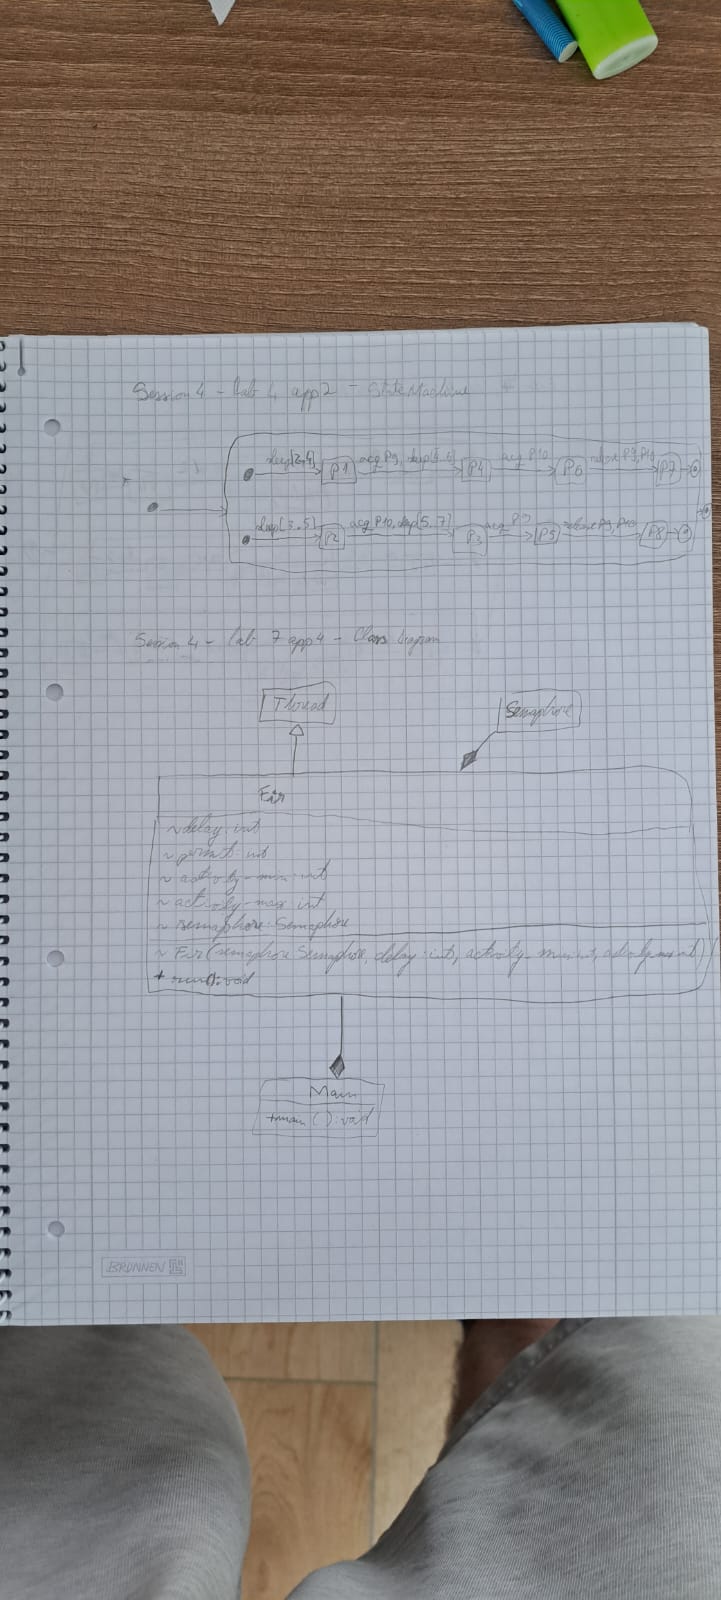 Session 4 - Lab 4 app2 - State Machine
sleep[2,4] P1 acq P9, sleep[4,6] P4 acq P10 P6 release P9, P10 P7
sleep[3,5] P2 acq P10, sleep[5,7] P3 acq P9 P5 release P9, P10 P8
Session 4 - Lab 7 app4 - Class Diagram
Thread
Semaphore
Fir
~ delay: int
~ permit: int
~ activity-min: int
~ activity-max: int
~ semaphore: Semaphore
~ Fir(semaphore: Semaphore, delay: int, activity-min: int, activity-max: int)
+ run(): void
Main
+main(): void
BRUNNEN